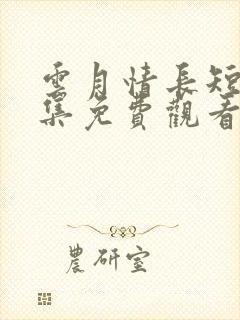 雲月情長短
集免費觀看
農研室